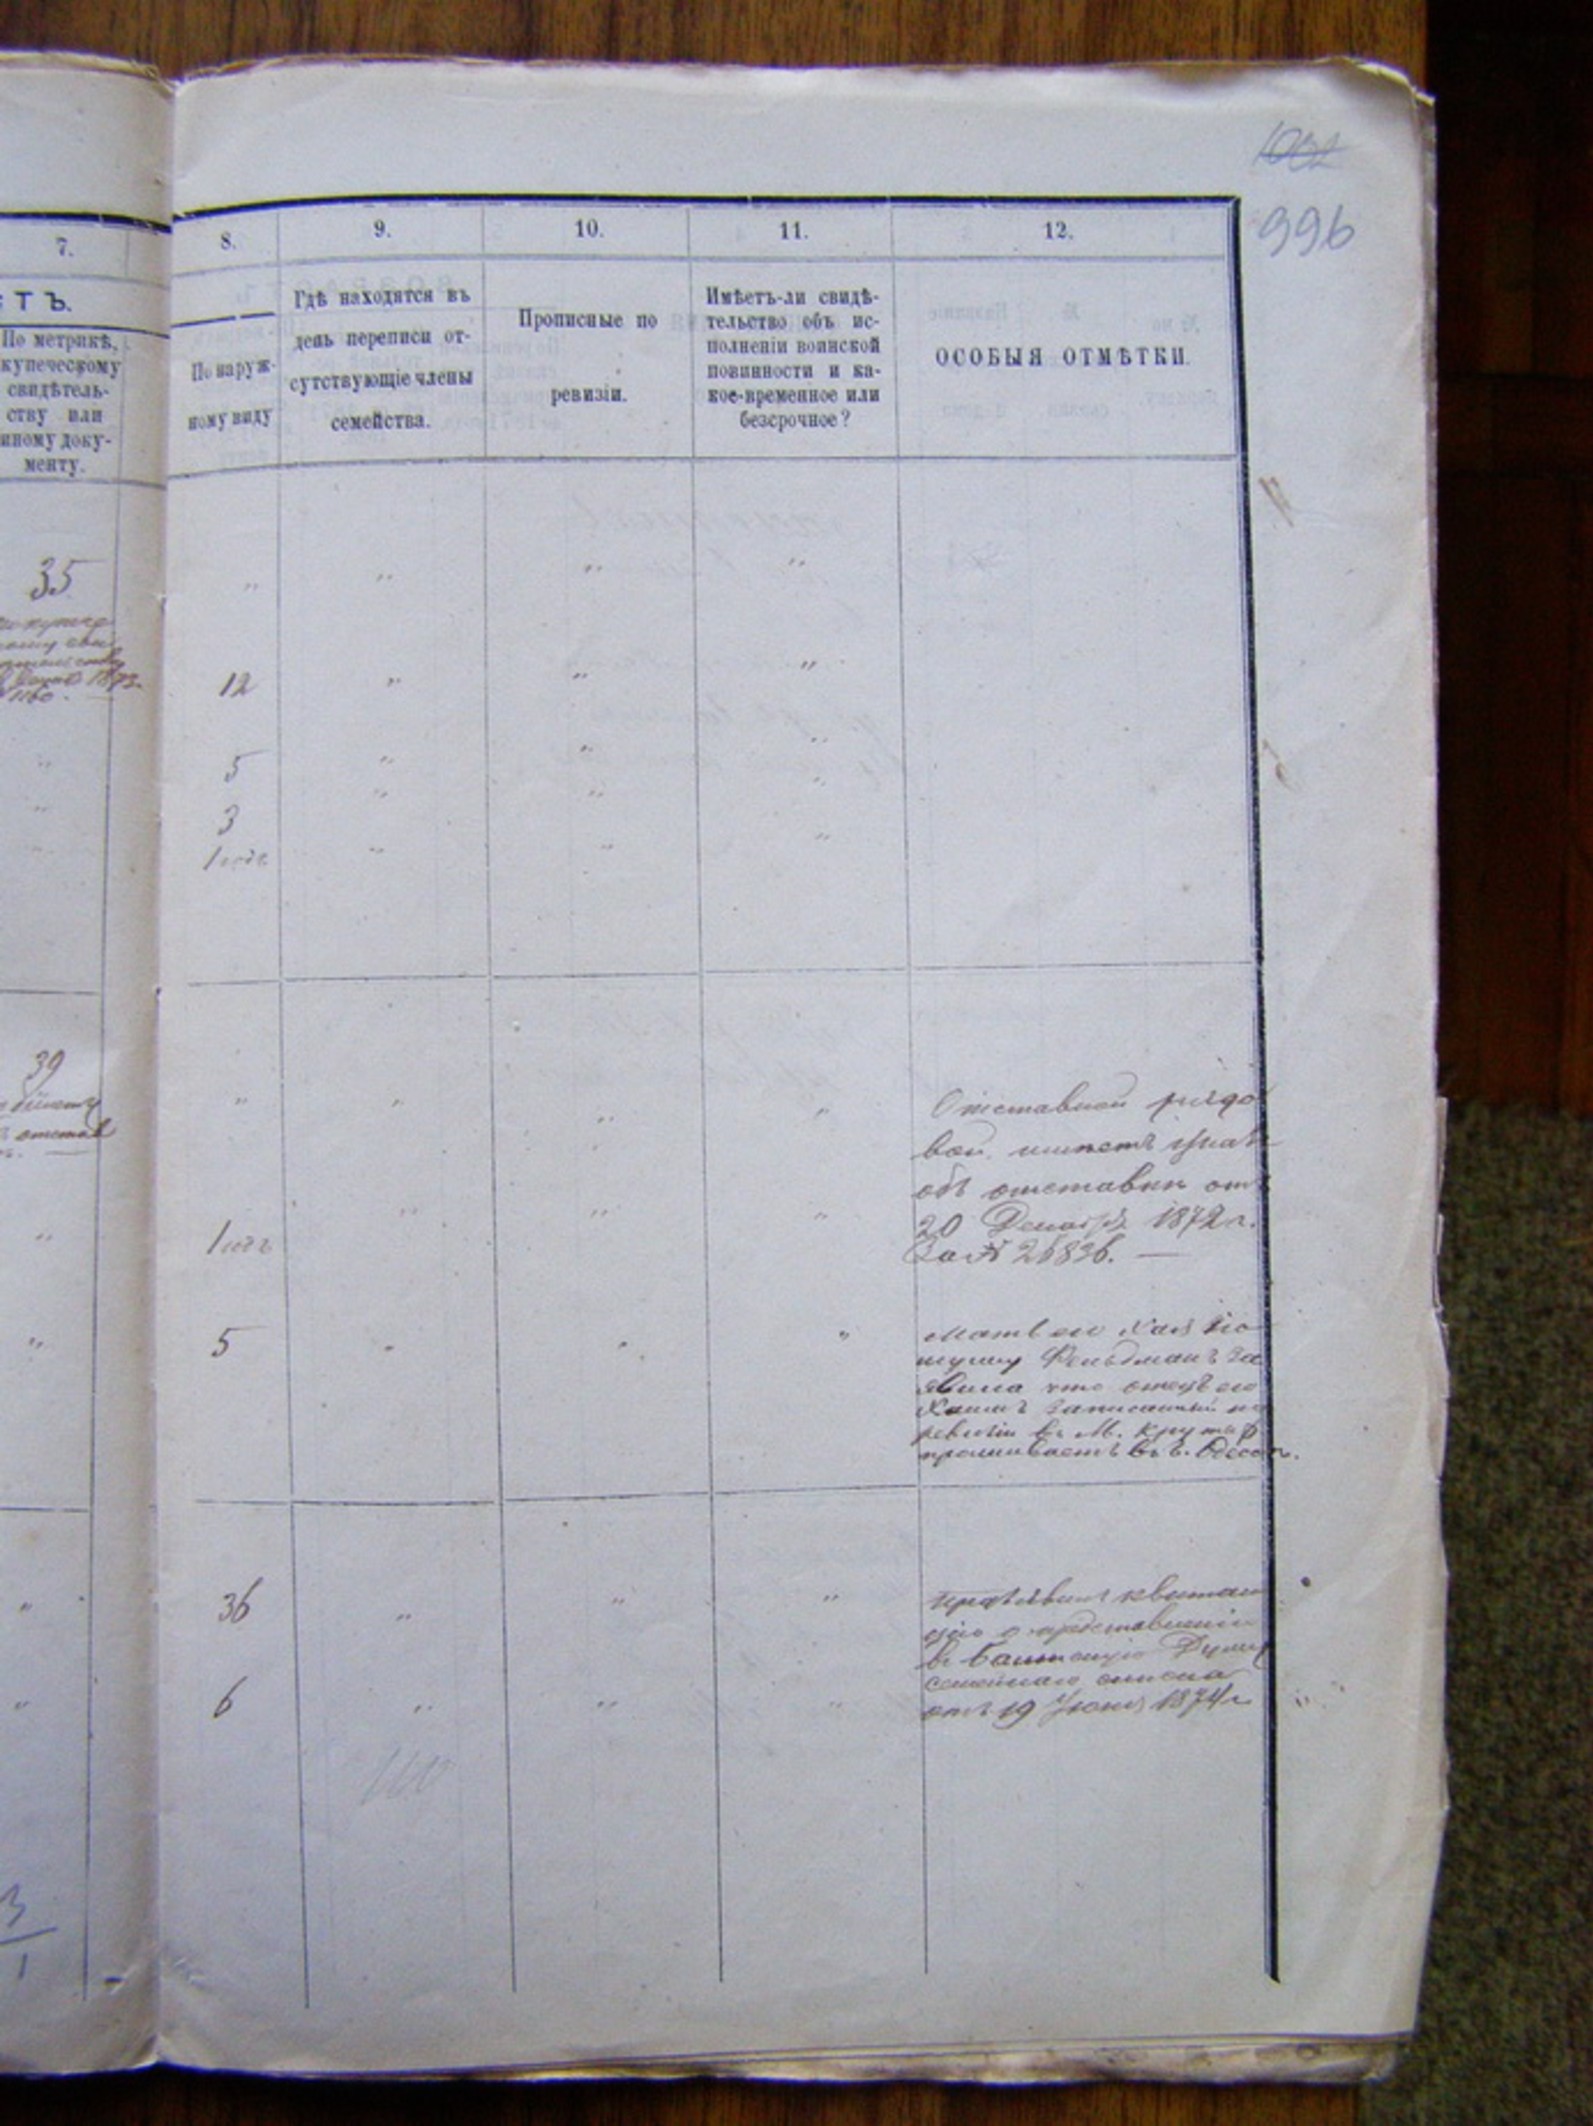 996
7.
8.
9.
10.
11.
12.
СТЪ.
По метрикѣ,
купеческому
свидѣтель-
ству или
иному доку-
менту.
По наруж-
ному виду
Гдѣ находятся въ
день переписи от-
сутствующіе члены
семейства.
Прописные по
ревизіи.
Имѣетъ-ли свидѣ-
тельство объ ис-
полненіи воинской
повинности и ка-
кое-временное или
безсрочное?
ОСОБЫЯ ОТМѢТКИ.
35
" " " "
1873
1160.
12 " " "
" 5 " " "
" 3 " " "
1 годъ " " "
39
" " " "
Отставной рядо
вой, имѣетъ указъ
объ отставки отъ
20 Декабря 1872 г.
За № 26836. —
" 1 годъ " " "
" 5 " " "
Мать его Хая
Фельдманъ за
явила что отецъ его
Хаимъ записанный по
ревизіи въ М. Круты
проживаетъ въ г. Одессѣ.
" 36 " " "
Предъявилъ квитан
цію о представленіи
въ Балтскую Думу
семейнаго списка
отъ 19 Іюня 1874 г.
" 6 " " "
3
1